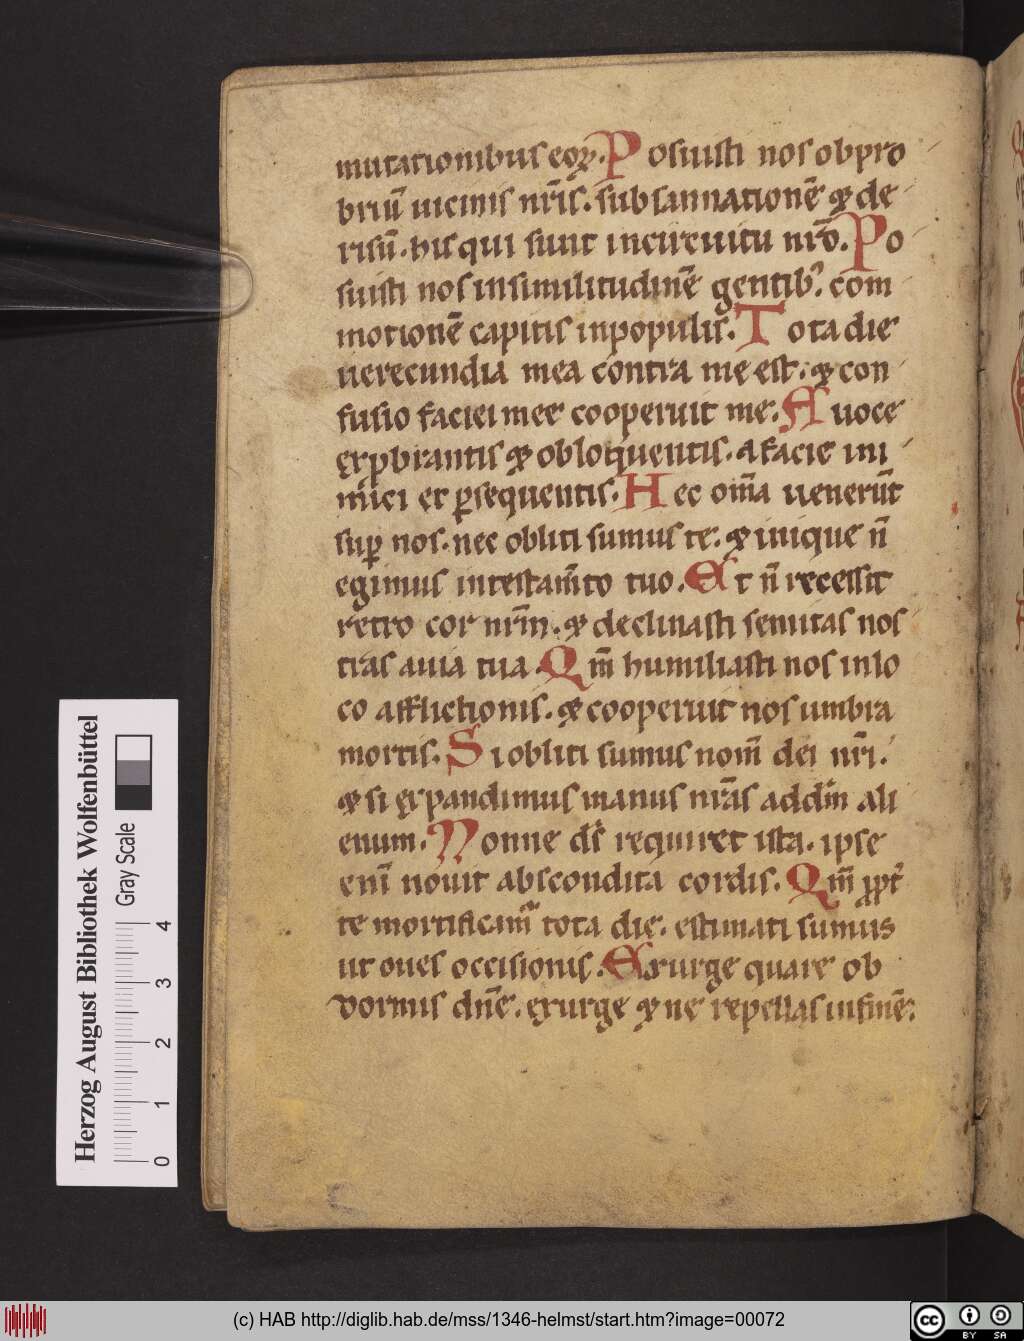 mutationibus eoꝝ. Posuisti nos obpro
briū uicinis nr̄is. subsannationē ⁊ de
risū. his qui sunt incircuitu nr̄o. Po
suisti nos insimilitudinē gentib'. com
motionē capitis inpopulis. Tota die
uerecundia mea contra me est. ⁊ con
fusio faciei mee cooperuit me. A uoce
exprobrantis ⁊ obloquentis. afacie ini
mici et ꝑsequentis. Hec om̄a uenerūt
suꝑ nos. nec obliti sumus te. ⁊ inique n̄
egimus intestam̄to tuo. Et n̄ recessit
retro cor nr̄m. ⁊ declinasti semitas nos
tras auia tua. Qm̄ humiliasti nos inlo
co afflictionis. ⁊ cooperuit nos umbra
mortis. Si obliti sumus nom̄ dei nr̄i.
⁊ si expandimus manus nr̄as addm̄ ali
enum. Nonne ds̄ requiret ista. ipse
enī nouit abscondita cordis. Qm̄ ꝓpt̄
te mortificam̄ tota die. estimati sumus
ut oues occisionis. Exurge quare ob
dormis dn̄e. exurge ⁊ ne repellas infinē.
Herzog August Bibliothek Wolfenbüttel
Gray Scale
0 1 2 3 4
(c) HAB http://diglib.hab.de/mss/1346-helmst/start.htm?image=00072
cc BY SA